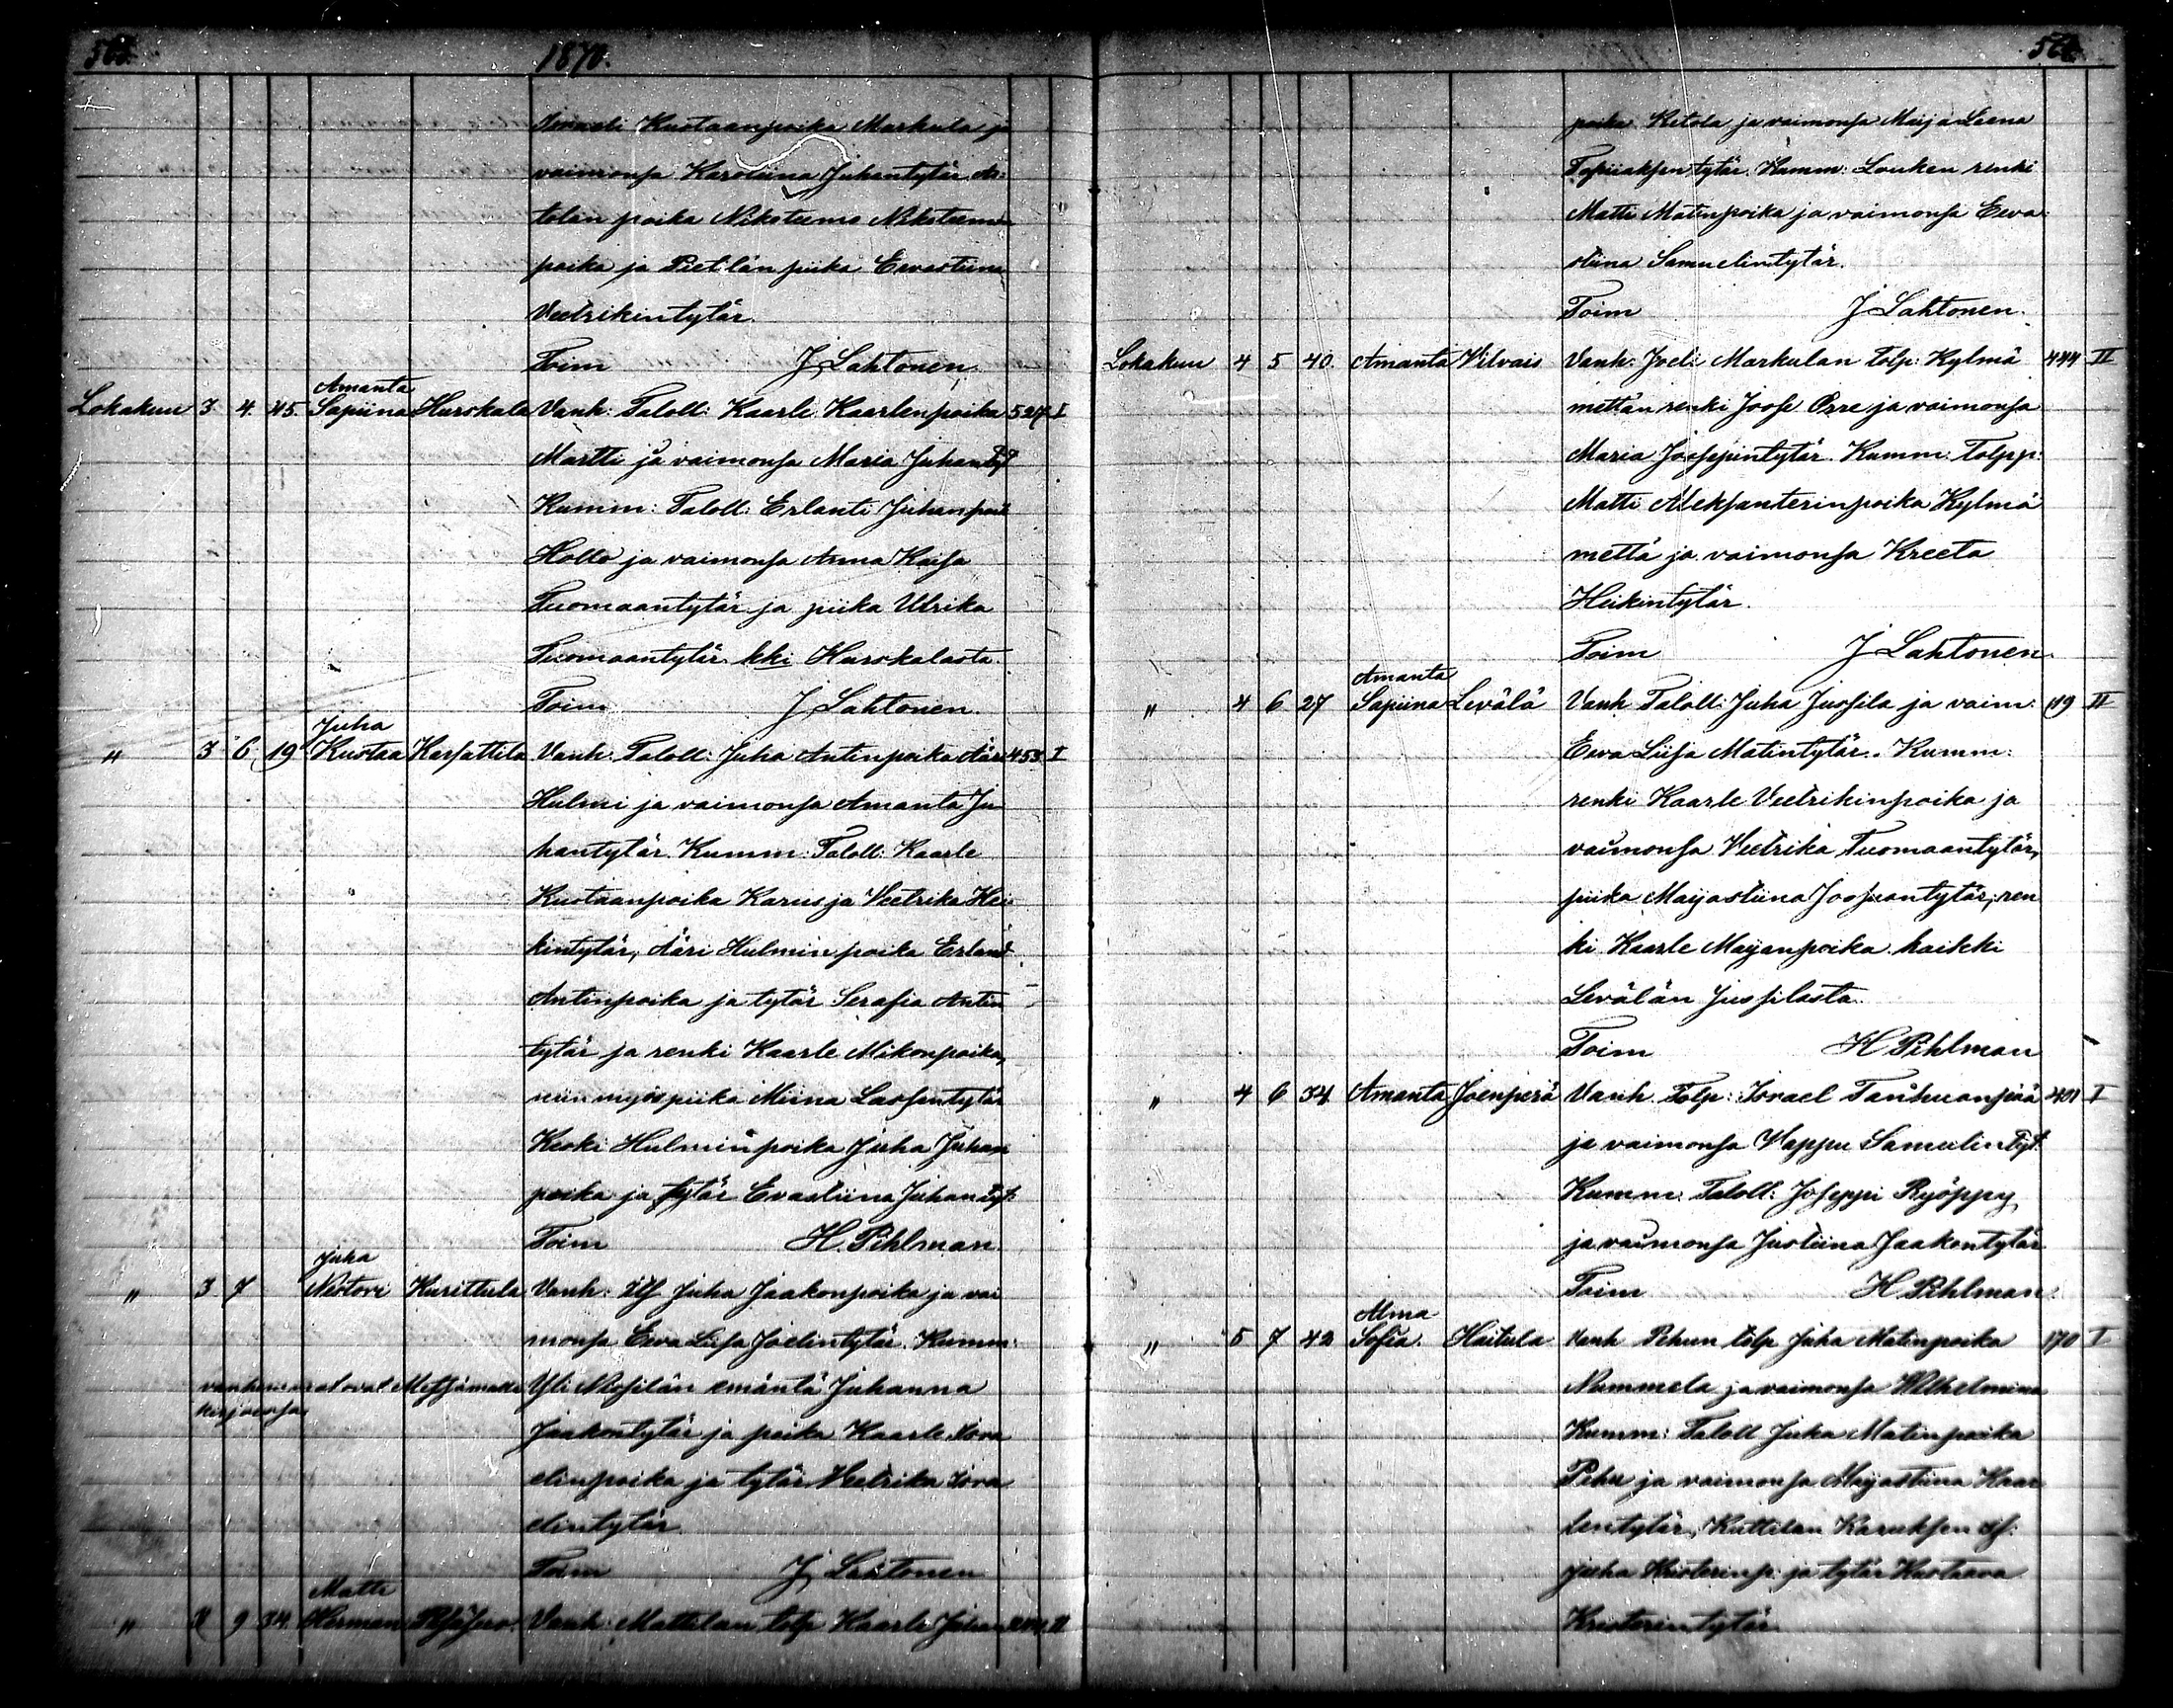 1870.
Kustaanpoika Markula ja
vaimonsa Karoliina Juhantytär As:
tolan poika Nikoteemo Nikoteemo
poika ja Pietilän piika Eevastiina
Veetrikintytär.
Toim J. Lahtonen.
Amanta
Lokakuu 3 4. 45. Sapiina Hurskala Vanh: Taloll: Kaarle Kaarlenpoika 527 I
Martti ja vaimonsa Maria Juhantyt
Kumm: Taloll: Erlanti Juhanpoi
Hollo ja vaimonsa Anna Kaisa
Tuomaantytär ja piika Ulrika
Tuomaantytär kki Hurskalasta.
Toim J. Lahtonen.
Juha
" 3 6 19 Kustaa Karsattila Vanh: Taloll: Juha Antinpoika Ääri 453 I
Hulmi ja vaimonsa Amanta Ju
hantytär. Kumm: Taloll: Kaarle
Kustaanpoika Karus ja Veetrika Hei
kintytär, Ääri Hulmin poika Erland
Antinpoika ja tytär Serafia Antin
tytär ja renki Kaarle Mikonpoika,
niin myös piika Miina Lassentytär
Keski Hulmin poika Juha Juhan
poika ja tytär Evastiina Juhantyt.
Toim H. Pihlman.
Juha
" 3 7 Nestori Kurittula Vanh: Itf Juha Jaakonpoika ja vai
monsa Eeva Liisa Joelintytär. Kumm:
vanhemmat ovat Metsämaan Yli Nissilän emäntä Juhanna
kirjoissa
Jaakontytär ja poika Kaarle Isra
elinpoika ja tytär Veetrika Isra
elintytär
Toim J. Lahtonen
Matti
" 3 9 34. Herman Vanh: Mattilan tolp Kaarle Juhan II
poika Ketola ja vaimonsa Maija Leena
Topiiaksentytär. Kumm: Louken renki
Matti Matinpoika ja vaimonsa Eeva:
stiina Samuelintytär.
Toim J Lahtonen.
Lokakuu 4 5 40. Amanta Vilvais Vanh: Joeli Markulan tolp: Kylmä 444 II
mettän renki Joose Orre ja vaimonsa
Maria Joosepintytär. Kumm: Tolpp:
Matti Aleksanterinpoika Kylmä
mettä ja vaimonsa Kreeta
Heikintytär.
Toim J Lahtonen.
Amanta
" 4 6 27 Sapiina Levälä Vanh Taloll: Juha Jussila ja vaim: 119 II
Eeva Liisa Matintytär. Kumm:
renki Kaarle Veetrikinpoika ja
vaimonsa Veetrika Tuomaantytär,
piika Majastiina Joosuantytär, ren
ki Kaarle Majanpoika kaikki
Levälän Jussilasta.
Toim H Pihlman
" 4 6 34 Amanta Joenperä Vanh. Tolp: Israel Tanhuanpää 401 I
ja vaimonsa Vappu Samulin Tyt.
Kumm: Taloll: Joseppi Ryöppy
ja vaimonsa Justiina Jaakontytär
Toim H Pihlman.
Alma
" 5 7 42 Sofia. Haitula Vanh Pehun tolp Juha Matinpoika 170 I
Nummela ja vaimonsa Wilhelmiina
Kumm: Taloll Juha Matinpoika
Pehu ja vaimonsa Majastiina Kaar
lentytär, Kuttilan Karuksen itf:
Juha Kristerinp: ja tytär Kustaava
Kristerintytär